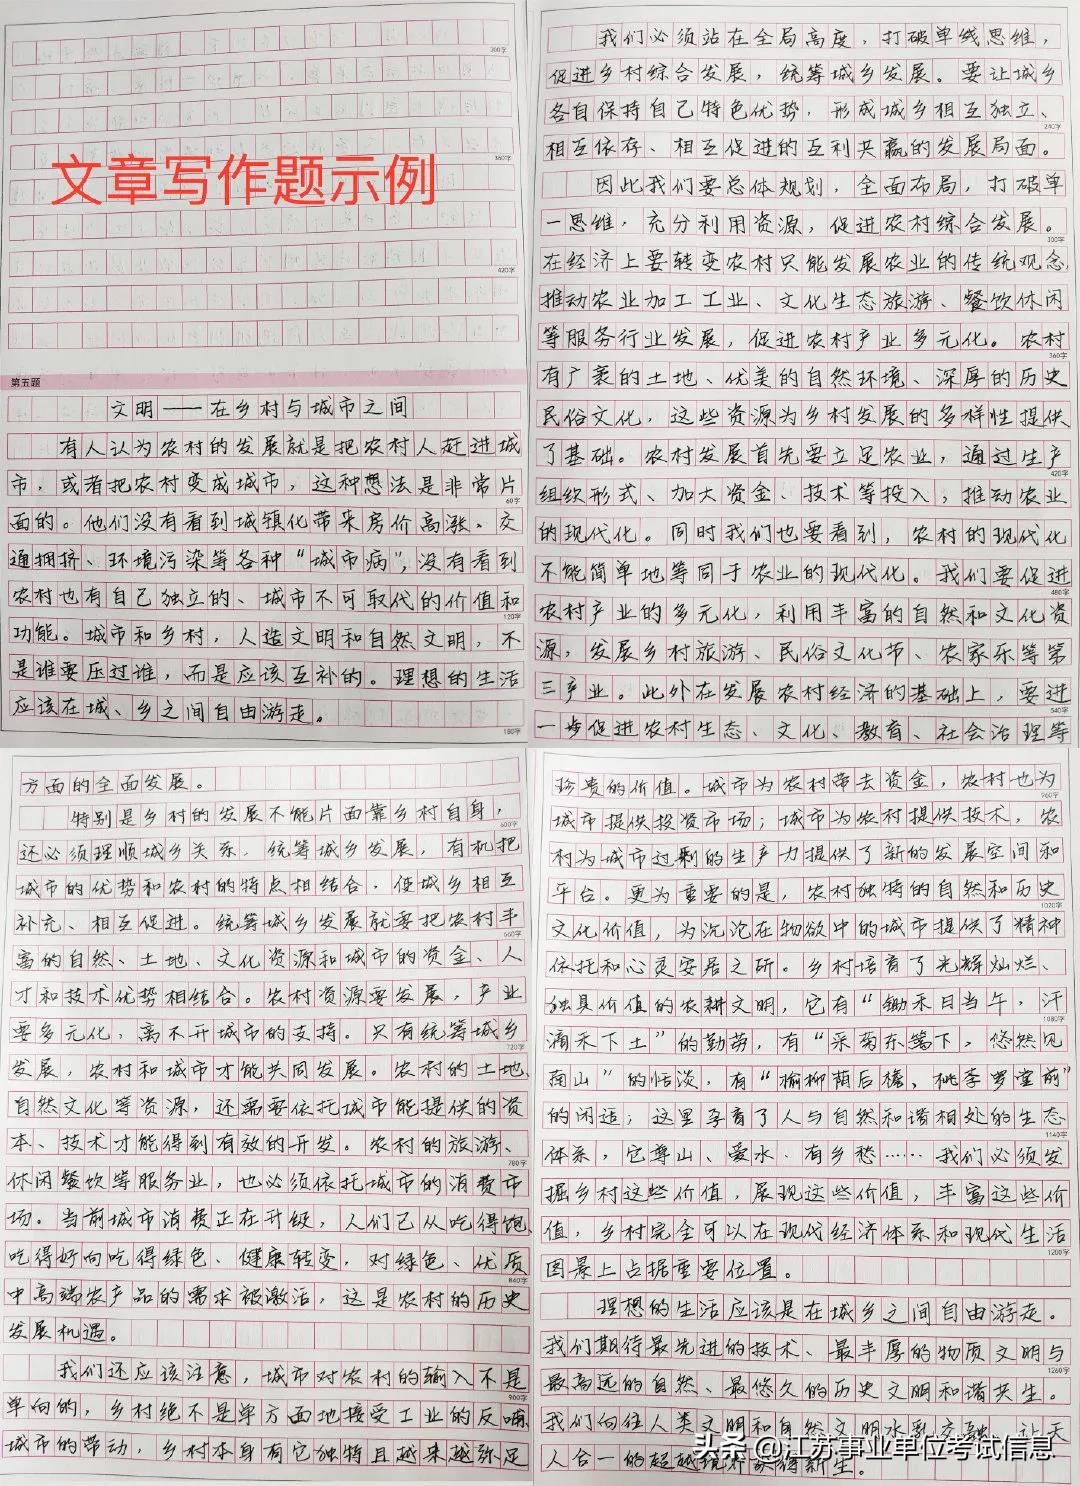 300字
360字
文章写作题示例
420字
第五题
文明——在乡村与城市之间
有人认为农村的发展就是把农村人赶进城
市，或者把农村变成城市，这种想法是非常片
60字
面的。他们没有看到城镇化带来房价高涨、交
通拥挤、环境污染等各种“城市病”，没有看到
农村也有自己独立的、城市不可取代的价值和
120字
功能。城市和乡村，人造文明和自然文明，不
是谁要压过谁，而是应该互补的。理想的生活
应该在城、乡之间自由游走。
180字
我们必须站在全局高度，打破单线思维，
促进乡村综合发展，统筹城乡发展。要让城乡
各自保持自己特色优势，形成城乡相互独立、
240字
相互依存、相互促进的互利共赢的发展局面。
因此我们要总体规划，全面布局，打破单
一思维，充分利用资源，促进农村综合发展。
300字
在经济上要转变农村只能发展农业的传统观念，
推动农业加工工业、文化生态旅游、餐饮休闲
等服务行业发展，促进农村产业多元化。农村
360字
有广袤的土地、优美的自然环境、深厚的历史
民俗文化，这些资源为乡村发展的多样性提供
了基础。农村发展首先要立足农业，通过生产
420字
组织形式、加大资金、技术等投入，推动农业
的现代化。同时我们也要看到，农村的现代化
不能简单地等同于农业的现代化。我们要促进
480字
农村产业的多元化，利用丰富的自然和文化资
源，发展乡村旅游、民俗文化节、农家乐等第
三产业。此外在发展农村经济的基础上，要进
540字
一步促进农村生态、文化、教育、社会治理等
方面的全面发展。
特别是乡村的发展不能片面靠乡村自身，
600字
还必须理顺城乡关系，统筹城乡发展，有机把
城市的优势和农村的特点相结合，使城乡相互
补充、相互促进。统筹城乡发展就要把农村丰
660字
富的自然、土地、文化资源和城市的资金、人
才和技术优势相结合。农村资源要发展，产业
要多元化，离不开城市的支持。只有统筹城乡
720字
发展，农村和城市才能共同发展。农村的土地、
自然文化等资源，还需要依托城市能提供的资
本、技术才能得到有效的开发。农村的旅游、
780字
休闲餐饮等服务业，也必须依托城市的消费市
场。当前城市消费正在升级，人们已从吃得饱、
吃得好向吃得绿色、健康转变，对绿色、优质
840字
中高端农产品的需求被激活，这是农村的历史
发展机遇。
我们还应该注意，城市对农村的输入不是
900字
单向的，乡村绝不是单方面地接受工业的反哺、
城市的带动，乡村本身有它独特且越来越弥足
珍贵的价值。城市为农村带去资金，农村也为
960字
城市提供投资市场；城市为农村提供技术，农
村为城市过剩的生产力提供了新的发展空间和
平台。更为重要的是，农村独特的自然和历史
1020字
文化价值，为沉沦在物欲中的城市提供了精神
依托和心灵安居之所。乡村培育了光辉灿烂、
独具价值的农耕文明，它有“锄禾日当午，汗
1080字
滴禾下土”的勤劳，有“采菊东篱下，悠然见
南山”的恬淡，有“榆柳荫后檐，桃李罗堂前”
的闲适；这里孕育了人与自然和谐相处的生态
1140字
体系，它尊山、爱水、有乡愁……我们必须发
掘乡村这些价值，展现这些价值，丰富这些价
值，乡村完全可以在现代经济体系和现代生活
1200字
图景上占据重要位置。
理想的生活应该是在城乡之间自由游走。
我们期待最先进的技术、最丰厚的物质文明与
1260字
最高远的自然、最悠久的历史文明和谐共生。
我们向往人类文明和自然文明水乳交融，让天
人合一的超越境界获得新生。
头条 @江苏事业单位考试信息